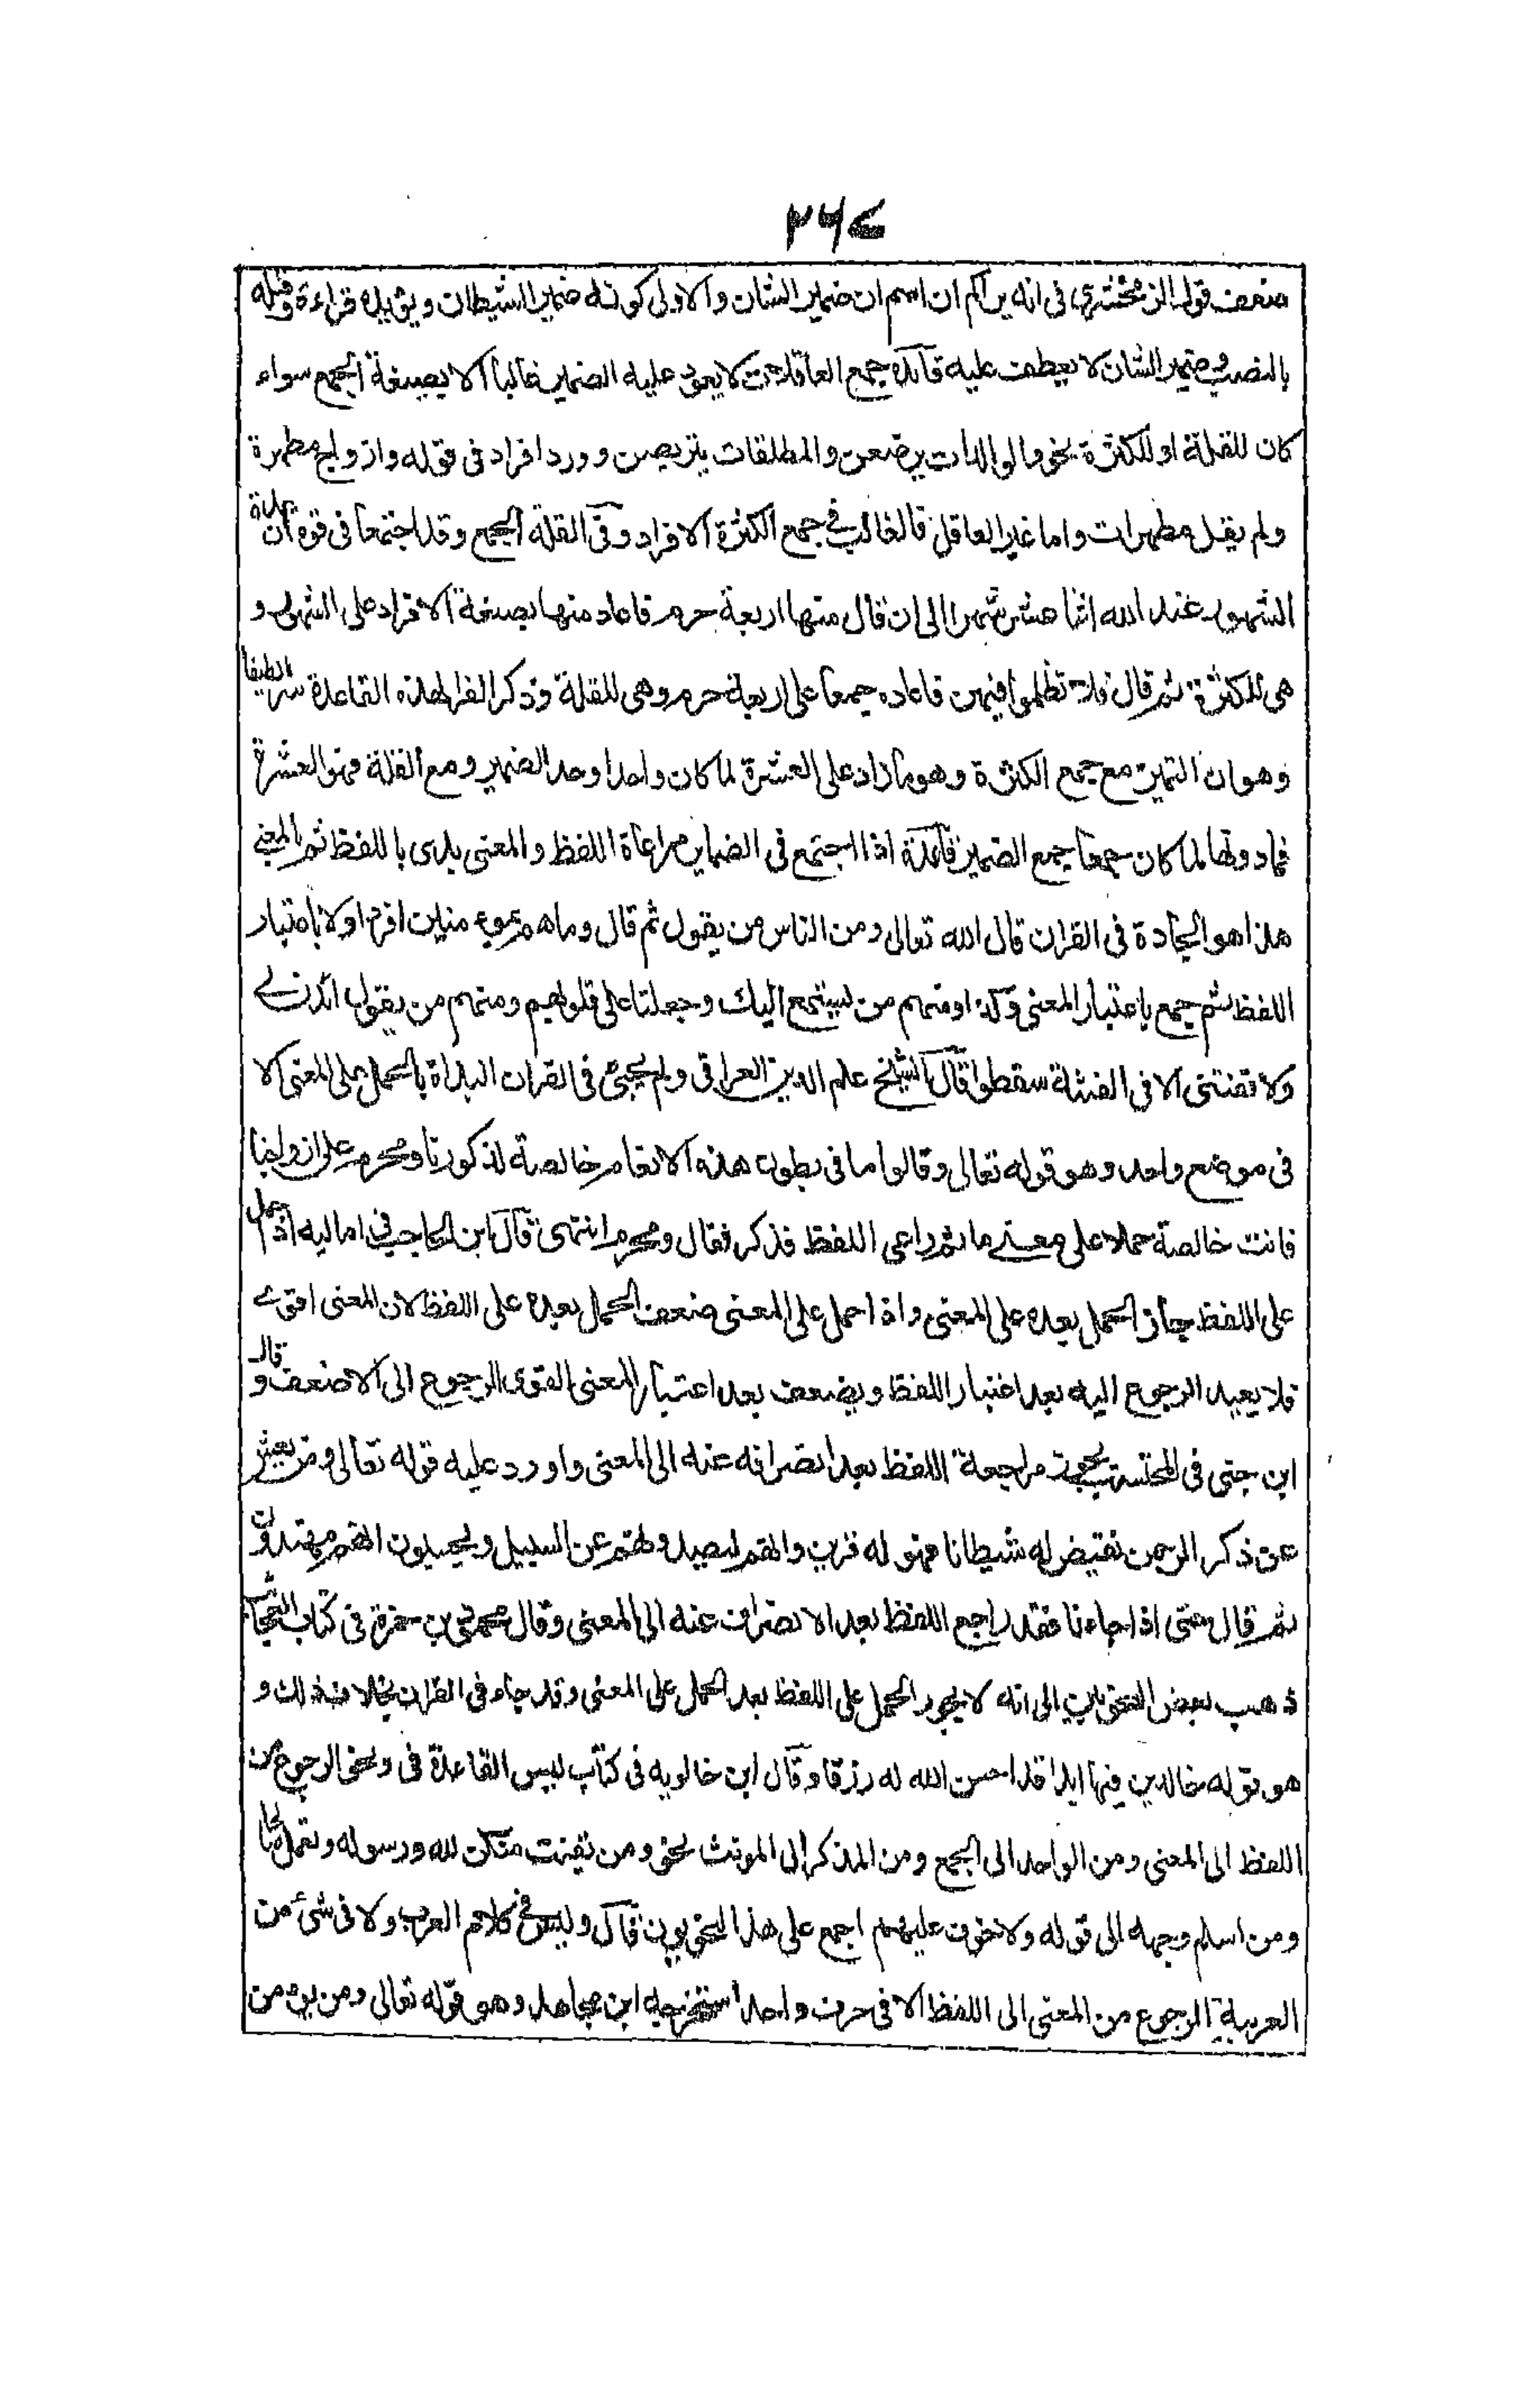 ۳۶۷
ضعف قول الزمخشری فی انه یراکم ان اسم ان ضمیر الشان والاولی کونه ضمیر الشیطان ویؤیده قراءة وقبیله
بالنصب وضمیر الشان لا یعطف علیه قاعدة جمع العاقلات لا یعود علیه الضمیر غالبا الا بصیغة الجمع سواء
کان للقلة او للکثرة نحو والوالدات یرضعن والمطلقات یتربصن وورد افراد فی قوله وازواج مطهرة
ولم یقل مطهرات واما غیر العاقل فالغالب فی جمع الکثرة الافراد وفی القلة الجمع وقد اجتمعا فی قوله ان عدة
الشهور عند الله اثنا عشر شهرا الی ان قال منها اربعة حرم فاعاد منها بصیغة الافراد علی الشهور و
هی للکثرة ثم قال فلا تظلموا فیهن فاعاده جمعا علی اربعة حرم وهی للقلة وذکر الفرا لهذه القاعدة سرا لطیفا
وهو ان التمیز مع جمع الکثرة وهو ما زاد علی العشرة لما کان واحدا وحد الضمیر ومع القلة وهو العشرة
فما دونها لما کان جمعا جمع الضمیر قاعدة اذا اجتمع فی الضمایر مراعاة اللفظ والمعنی بدی باللفظ ثم بالمعنی
هذا هو الجادة فی القران قال الله تعالی ومن الناس من یقول ثم قال وما هم بمومنین افرد اولا باعتبار
اللفظ ثم جمع باعتبار المعنی وکذا ومنهم من یستمع الیک وجعلنا علی قلوبهم ومنهم من یقول ائذن لی
ولا تفتنی الا فی الفتنة سقطوا قال الشیخ علم الدین العراقی ولم یجئ فی القران البداة بالحمل علی المعنی الا
فی موضع واحد وهو قوله تعالی وقالوا ما فی بطون هذه الانعام خالصة لذکورنا ومحرم علی ازواجنا
فانث خالصة حملا علی معنی ما ثم راعی اللفظ فذکر فقال ومحرم انتهی قال ابن الحاجب فی امالیه اذا حمل
علی اللفظ جاز الحمل بعده علی المعنی واذا حمل علی المعنی ضعف الحمل بعده علی اللفظ لان المعنی اقوی
فلا یبعد الرجوع الیه بعد اعتبار اللفظ ویضعف بعد اعتبار المعنی القوی الرجوع الی الاضعف وقال
ابن جنی فی المحتسب یجوز مراجعة اللفظ بعد انصرافه عنه الی المعنی واورد علیه قوله تعالی ومن یعش
عن ذکر الرحمن نقیض له شیطانا فهو له قرین وانهم لیصدونهم عن السبیل ویحسبون انهم مهتدون
ثم قال حتی اذا جاءنا فقد راجع اللفظ بعد الانصراف عنه الی المعنی وقال محمود بن حمزة فی کتاب العجائب
ذهب بعض النحویین الی انه لا یجوز الحمل علی اللفظ بعد الحمل علی المعنی وقد جاء فی القران بخلاف ذلک و
هو قوله خالدین فیها ابدا قد احسن الله له رزقا وقال ابن خالویه فی کتاب لیس القاعدة فی ونحو الرجوع من
اللفظ الی المعنی ومن الواحد الی الجمع ومن المذکر الی المونث نحو ومن یقنت منکن لله ورسوله وتعمل صالحا
ومن اسلم وجهه الی قوله ولا خوف علیهم اجمع علی هذا النحویون قال ولیس فی کلام العرب ولا فی شئ من
العربیة الرجوع من المعنی الی اللفظ الا فی حرف واحد استخرجه ابن مجاهد وهو قوله تعالی ومن یؤمن